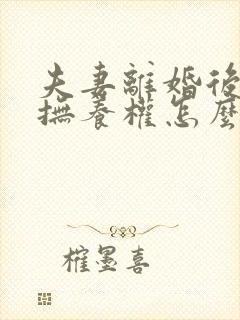 夫妻離婚後
撫養權怎麼
權墨喜